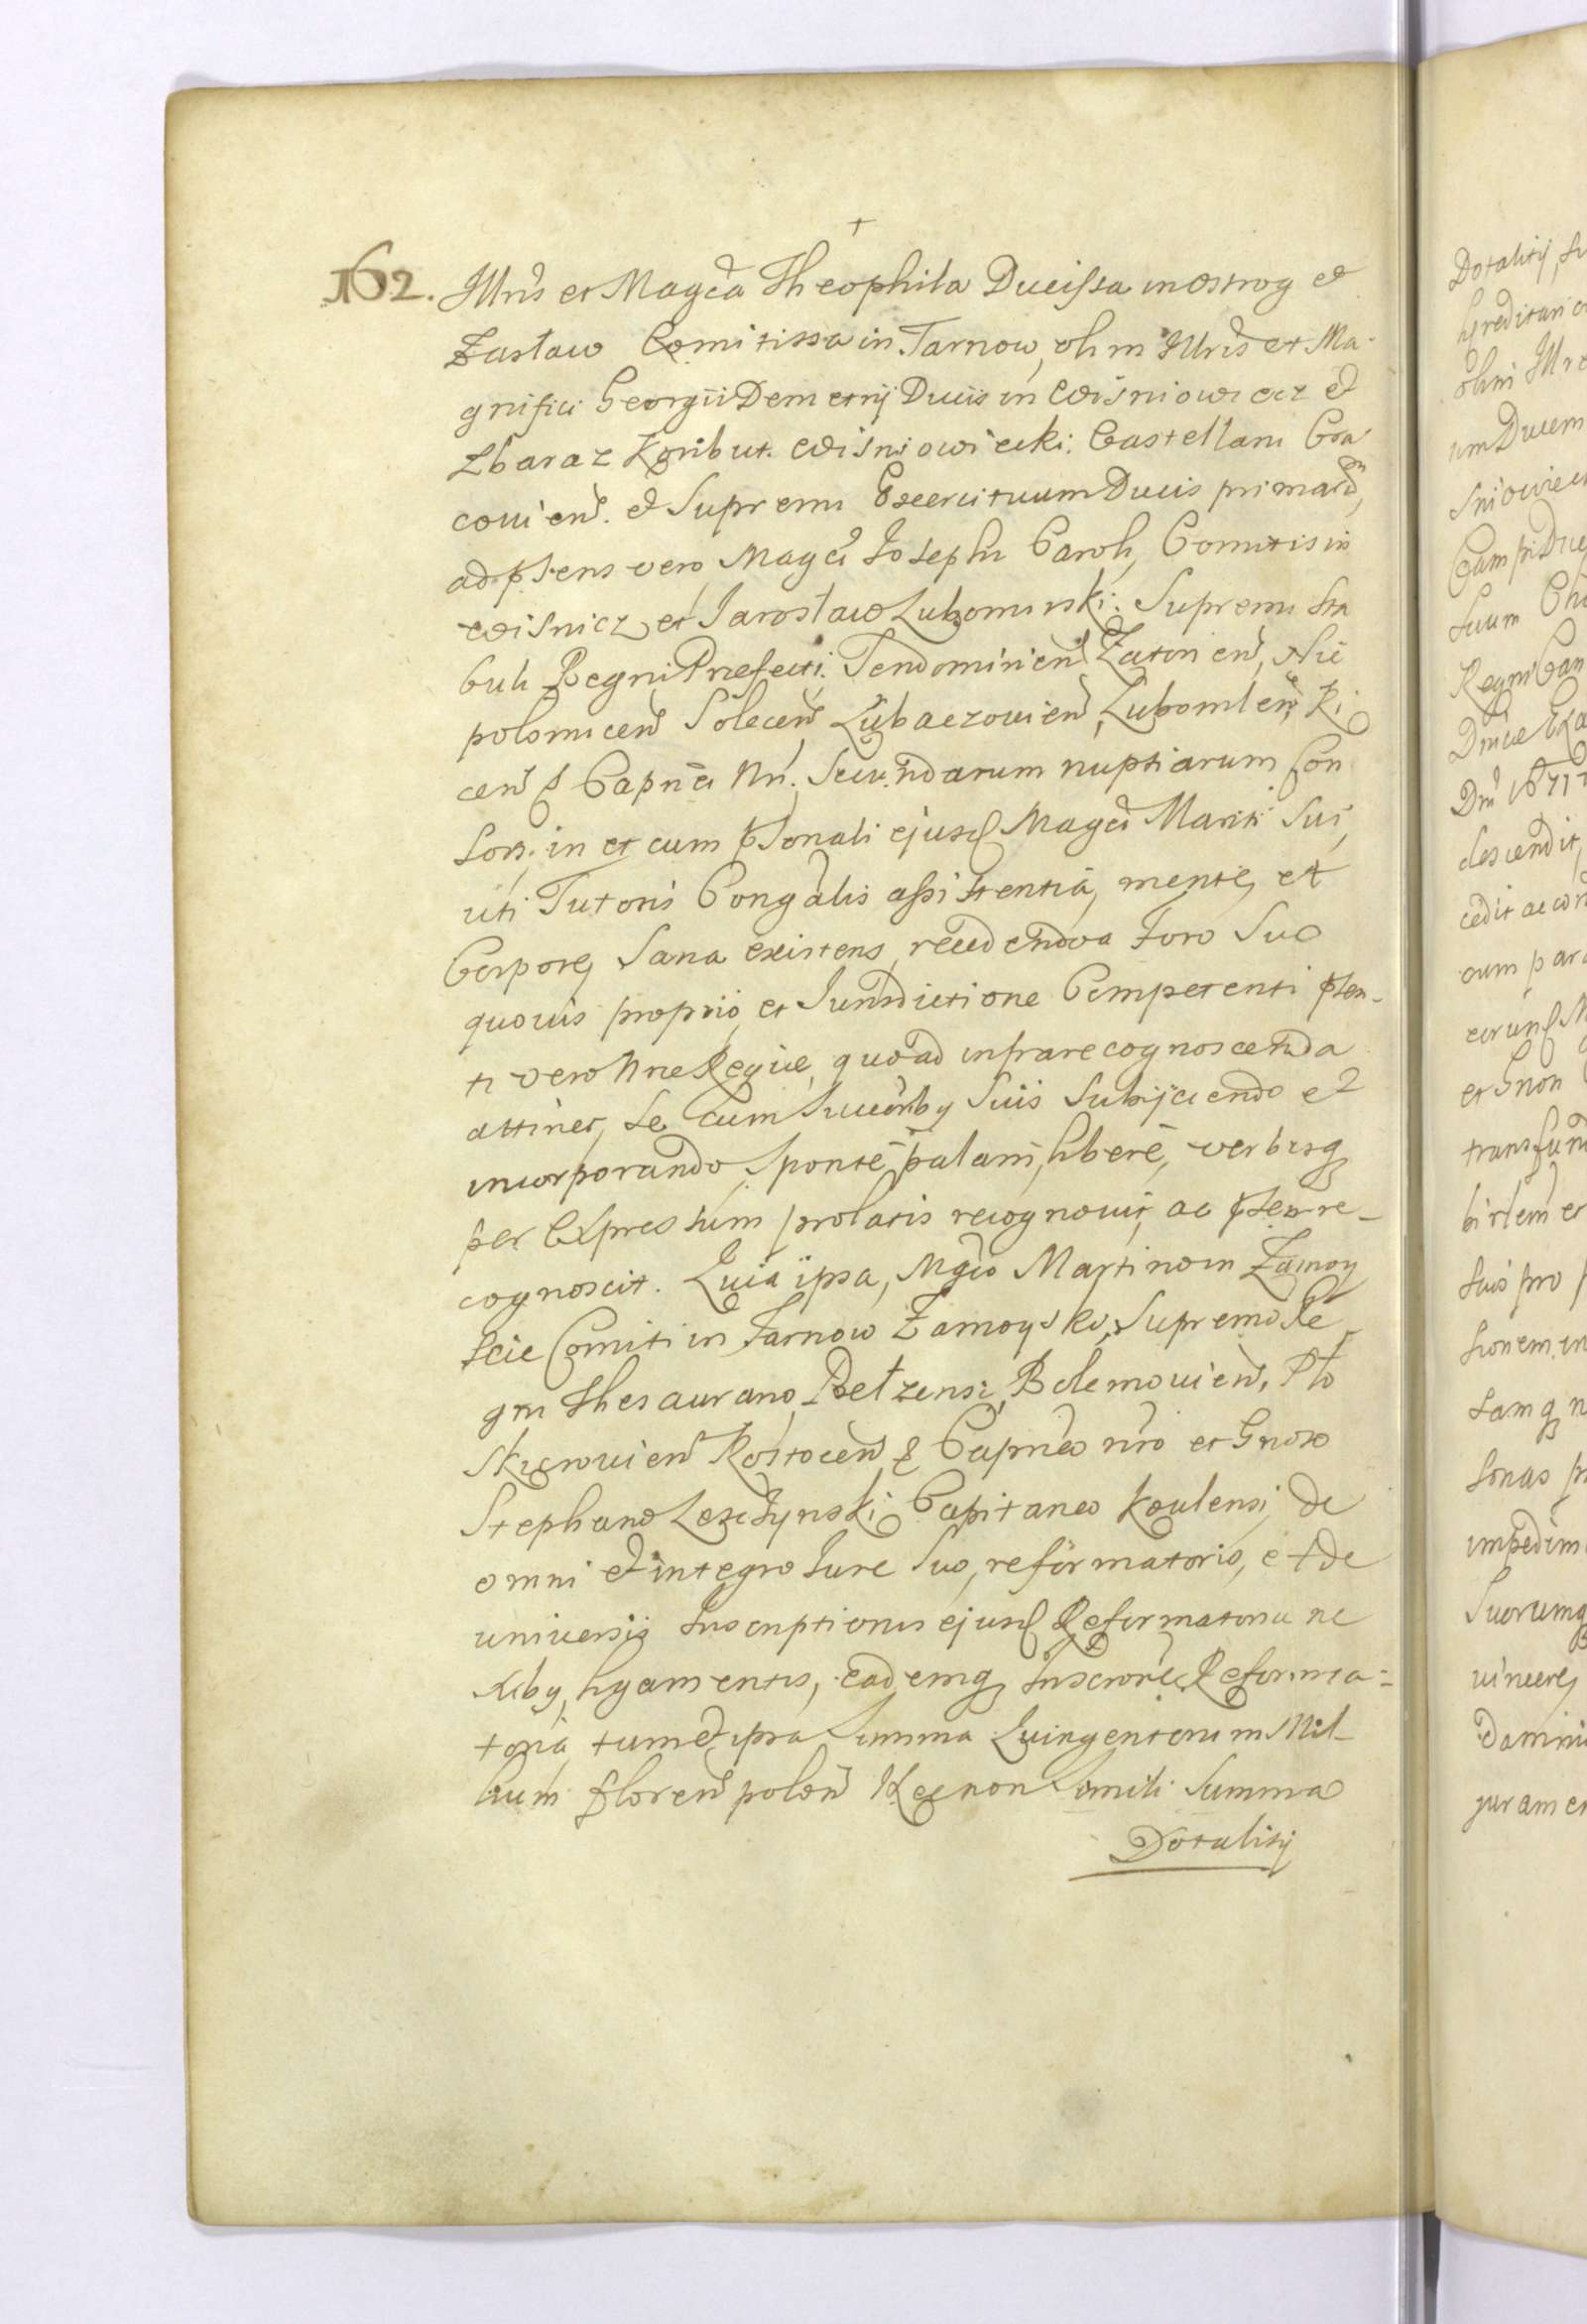 162. Illris et Magca Theophila Ducissa in Ostrog et
Zasław Comitissa in Tarnow, olim Illris et Ma-
gnifici Georgii Demetrij Ducis in Wisniowiecz et
Zbaraz Koribut. Wisniowiecki. Castellani Cra
covien. et Supremi Exercituum Ducis primarii,
ad pńsens vero Magci Josephi Caroli, Comitis in
Wisnicz et Jarosław Lubomirski. Supremi Sta
buli Regni Praefecti. Sendomirien Zatorien, Nie
polomicen Solecen Lubaczovien, Lubomlen, Ri
cen & Capnei Nri. Secundarum nuptiarum Con
sors. in et cum psonali ejusd Magci Mariti Sui,
uti Tutoris Congalis assistentia, mente, et
Corpore Sana existens, recedendo a foro Suo
quovis proprio, et Jurisdictione Competenti pńsen-
ti vero Nrae Regiae, quoad infra recognoscenda
attinet, Se cum Succeribg Suis Subijciendo et
incorporando, Sponte palam, libere, verbisq
per Expressum prolatis recognovit, ac pńsen re-
cognoscit. Quia ipsa, Mgco Martino in Zamoy
scie Comiti in Jarnow Zamoyski, Supremo Re
gni Thesaurario, Bełzensi, Bolemovien, Pło
skierovien Rostocen & Capneo nro et Gnoso
Stephano Leszczynski Capitaneo Koulensi, de
omni et integro Jure Suo, reformatorio, et de
universis Inscriptionis ejusd Reformatoriae ne
xibg, ligamentis, eademq Inscrone Reforma=
toria, tum et ipsa Summa Quingentorum Mil-
lium floren polon Necnon Simili Summa
Dotalitij
Dotalitij, Su
olim Illr
um Ducem
Sniowiec
Campi Duc
Suum
Dni 1671
descendit,
cedit ac con
cum par
et Gnon
transfun
Suis pro p
Sionem in
Samq n
Sonas p
impedim
Suorumq
vincere
damni
juramen